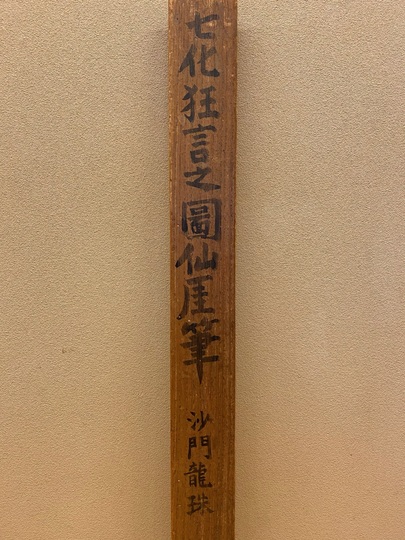 七化狂言之圖仙厓筆
沙門龍珠